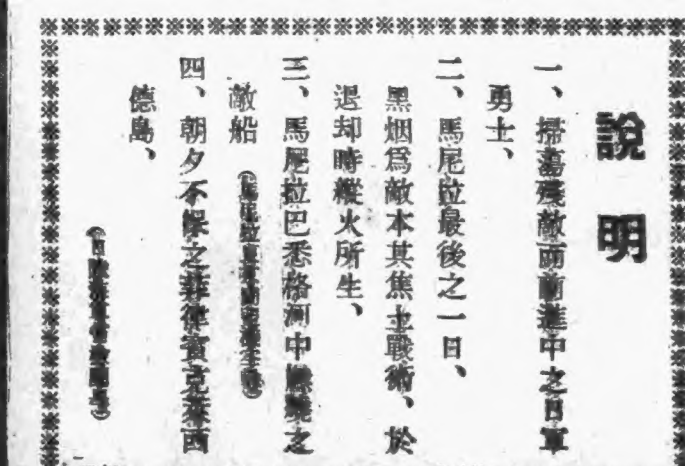 說明
一、掃蕩殘敵而前進中之日軍
勇士、
二、馬尼拉最後之一日、
黑烟爲敵本其焦土戰術、於
退却時縱火所生、
三、馬尼拉巴悉格河中燃燒之
敵船
四、朝夕不保之菲律賓克萊西
德島、